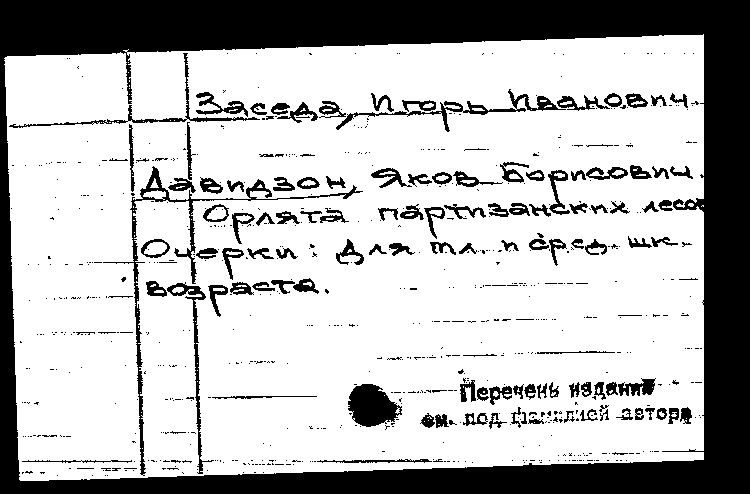 Заседа, Игорь Иванович.
Давидзон, Яков Борисович.
Орлята партизанских лесов
Очерки: Для мл. и сред. шк.
возраста.
Перечень изданий
см. под фамилией автора